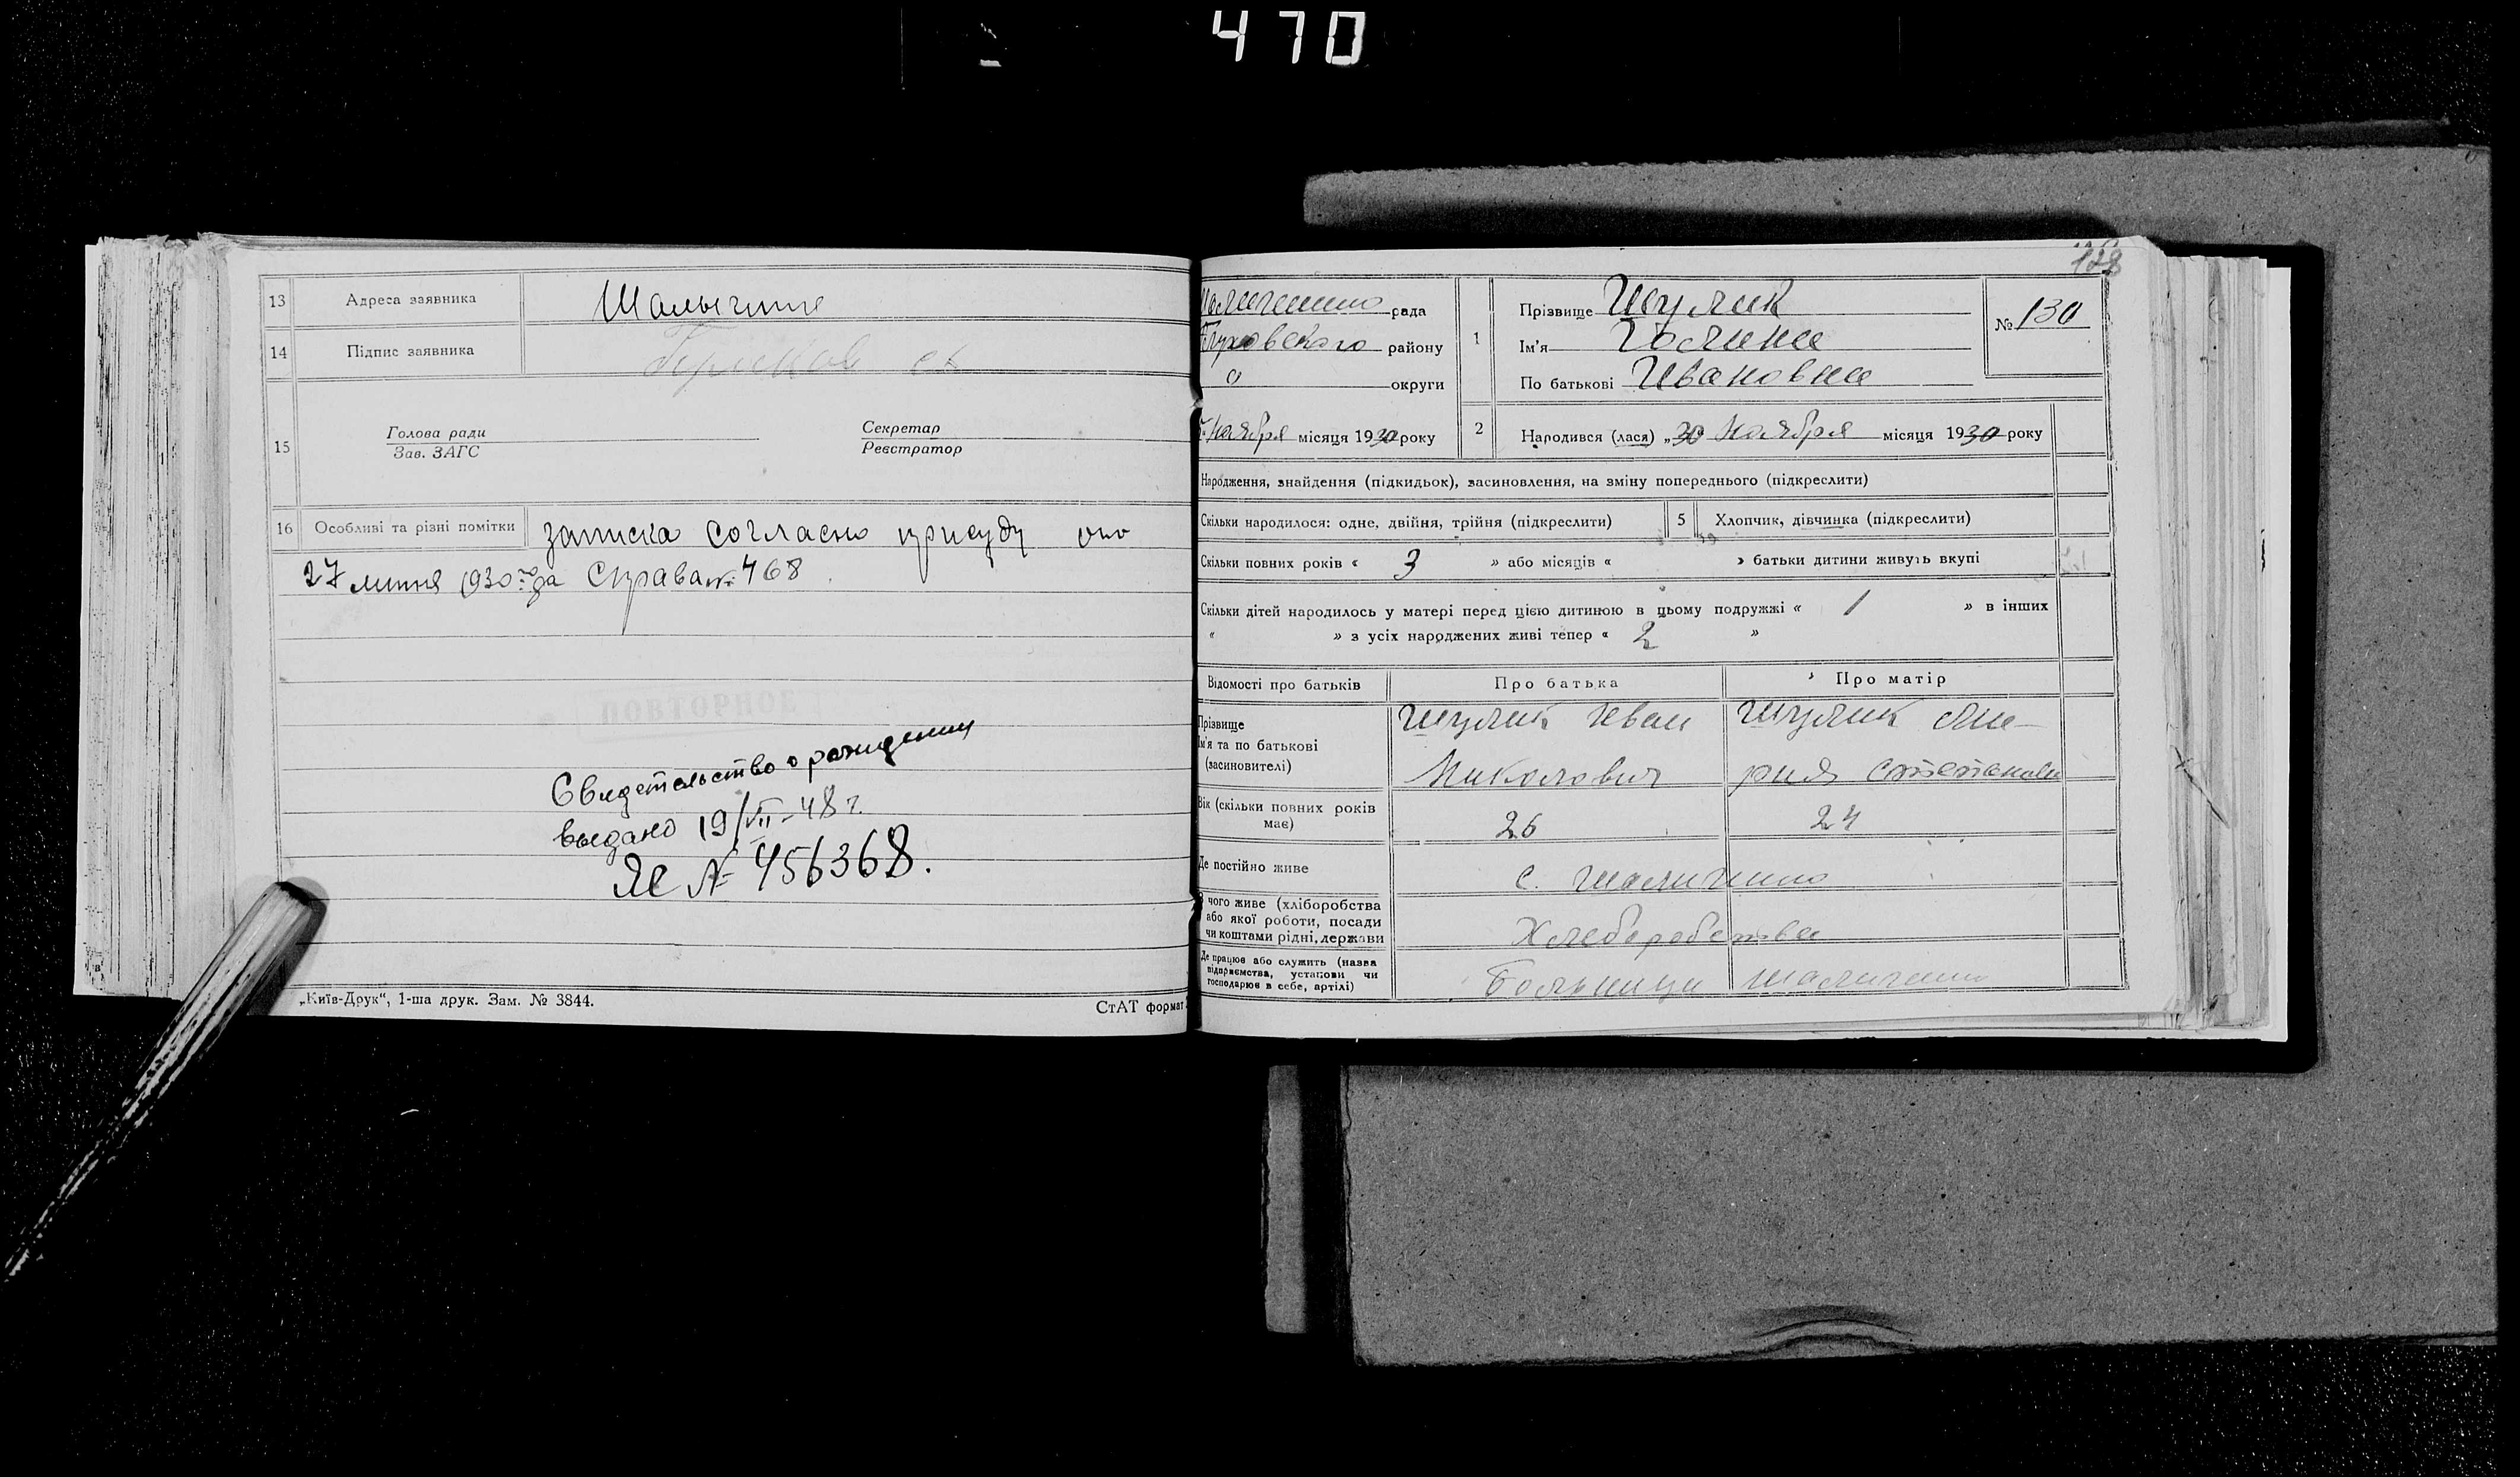 470
13 Адреса заявника Шалыгине
14 Підпис заявника
15 Голова ради Секретар
Зав. ЗАГС Реєстратор
16 Особливі та різні помітки записка согласно присуду
27 липня 1930 года Справа № 468
ПОВТОРНОЕ
Свидетельство о рождении
выдано 19/VII-48 г.
№ 456368.
„Київ-Друк“, 1-ша друк. Зам. № 3844. СтАТ формат
128
рада
Глуховского району
округи
1 Прізвище Шулик
Ім'я Галина
По батькові Ивановна
№ 130
Ноября місяця 1930 року
2 Народився (лася) „30“ Ноября місяця 1930 року
Народження, знайдення (підкидьок), засиновлення, на зміну попереднього (підкреслити)
Скільки народилося: одне, двійня, трійня (підкреслити) 5 Хлопчик, дівчинка (підкреслити)
Скільки повних років « 3 » або місяців « » батьки дитини живуть вкупі
Скільки дітей народилось у матері перед цією дитиною в цьому подружжі « 1 » в інших
« » з усіх народжених живі тепер « 2 »
Відомості про батьків Про батька Про матір
Прізвище Шулик Иван Шулик Ма-
Ім'я та по батькові
(засиновителі) Миколович рия Степановн
Вік (скільки повних років має) 26 24
Де постійно живе с. Шалигино
З чого живе (хліборобства
або якої роботи, посади
чи коштами рідні, держави Хлеборобства
Де працює або служить (назва
підприємства, установи чи
господарює в себе, артілі) Больници Шалигино